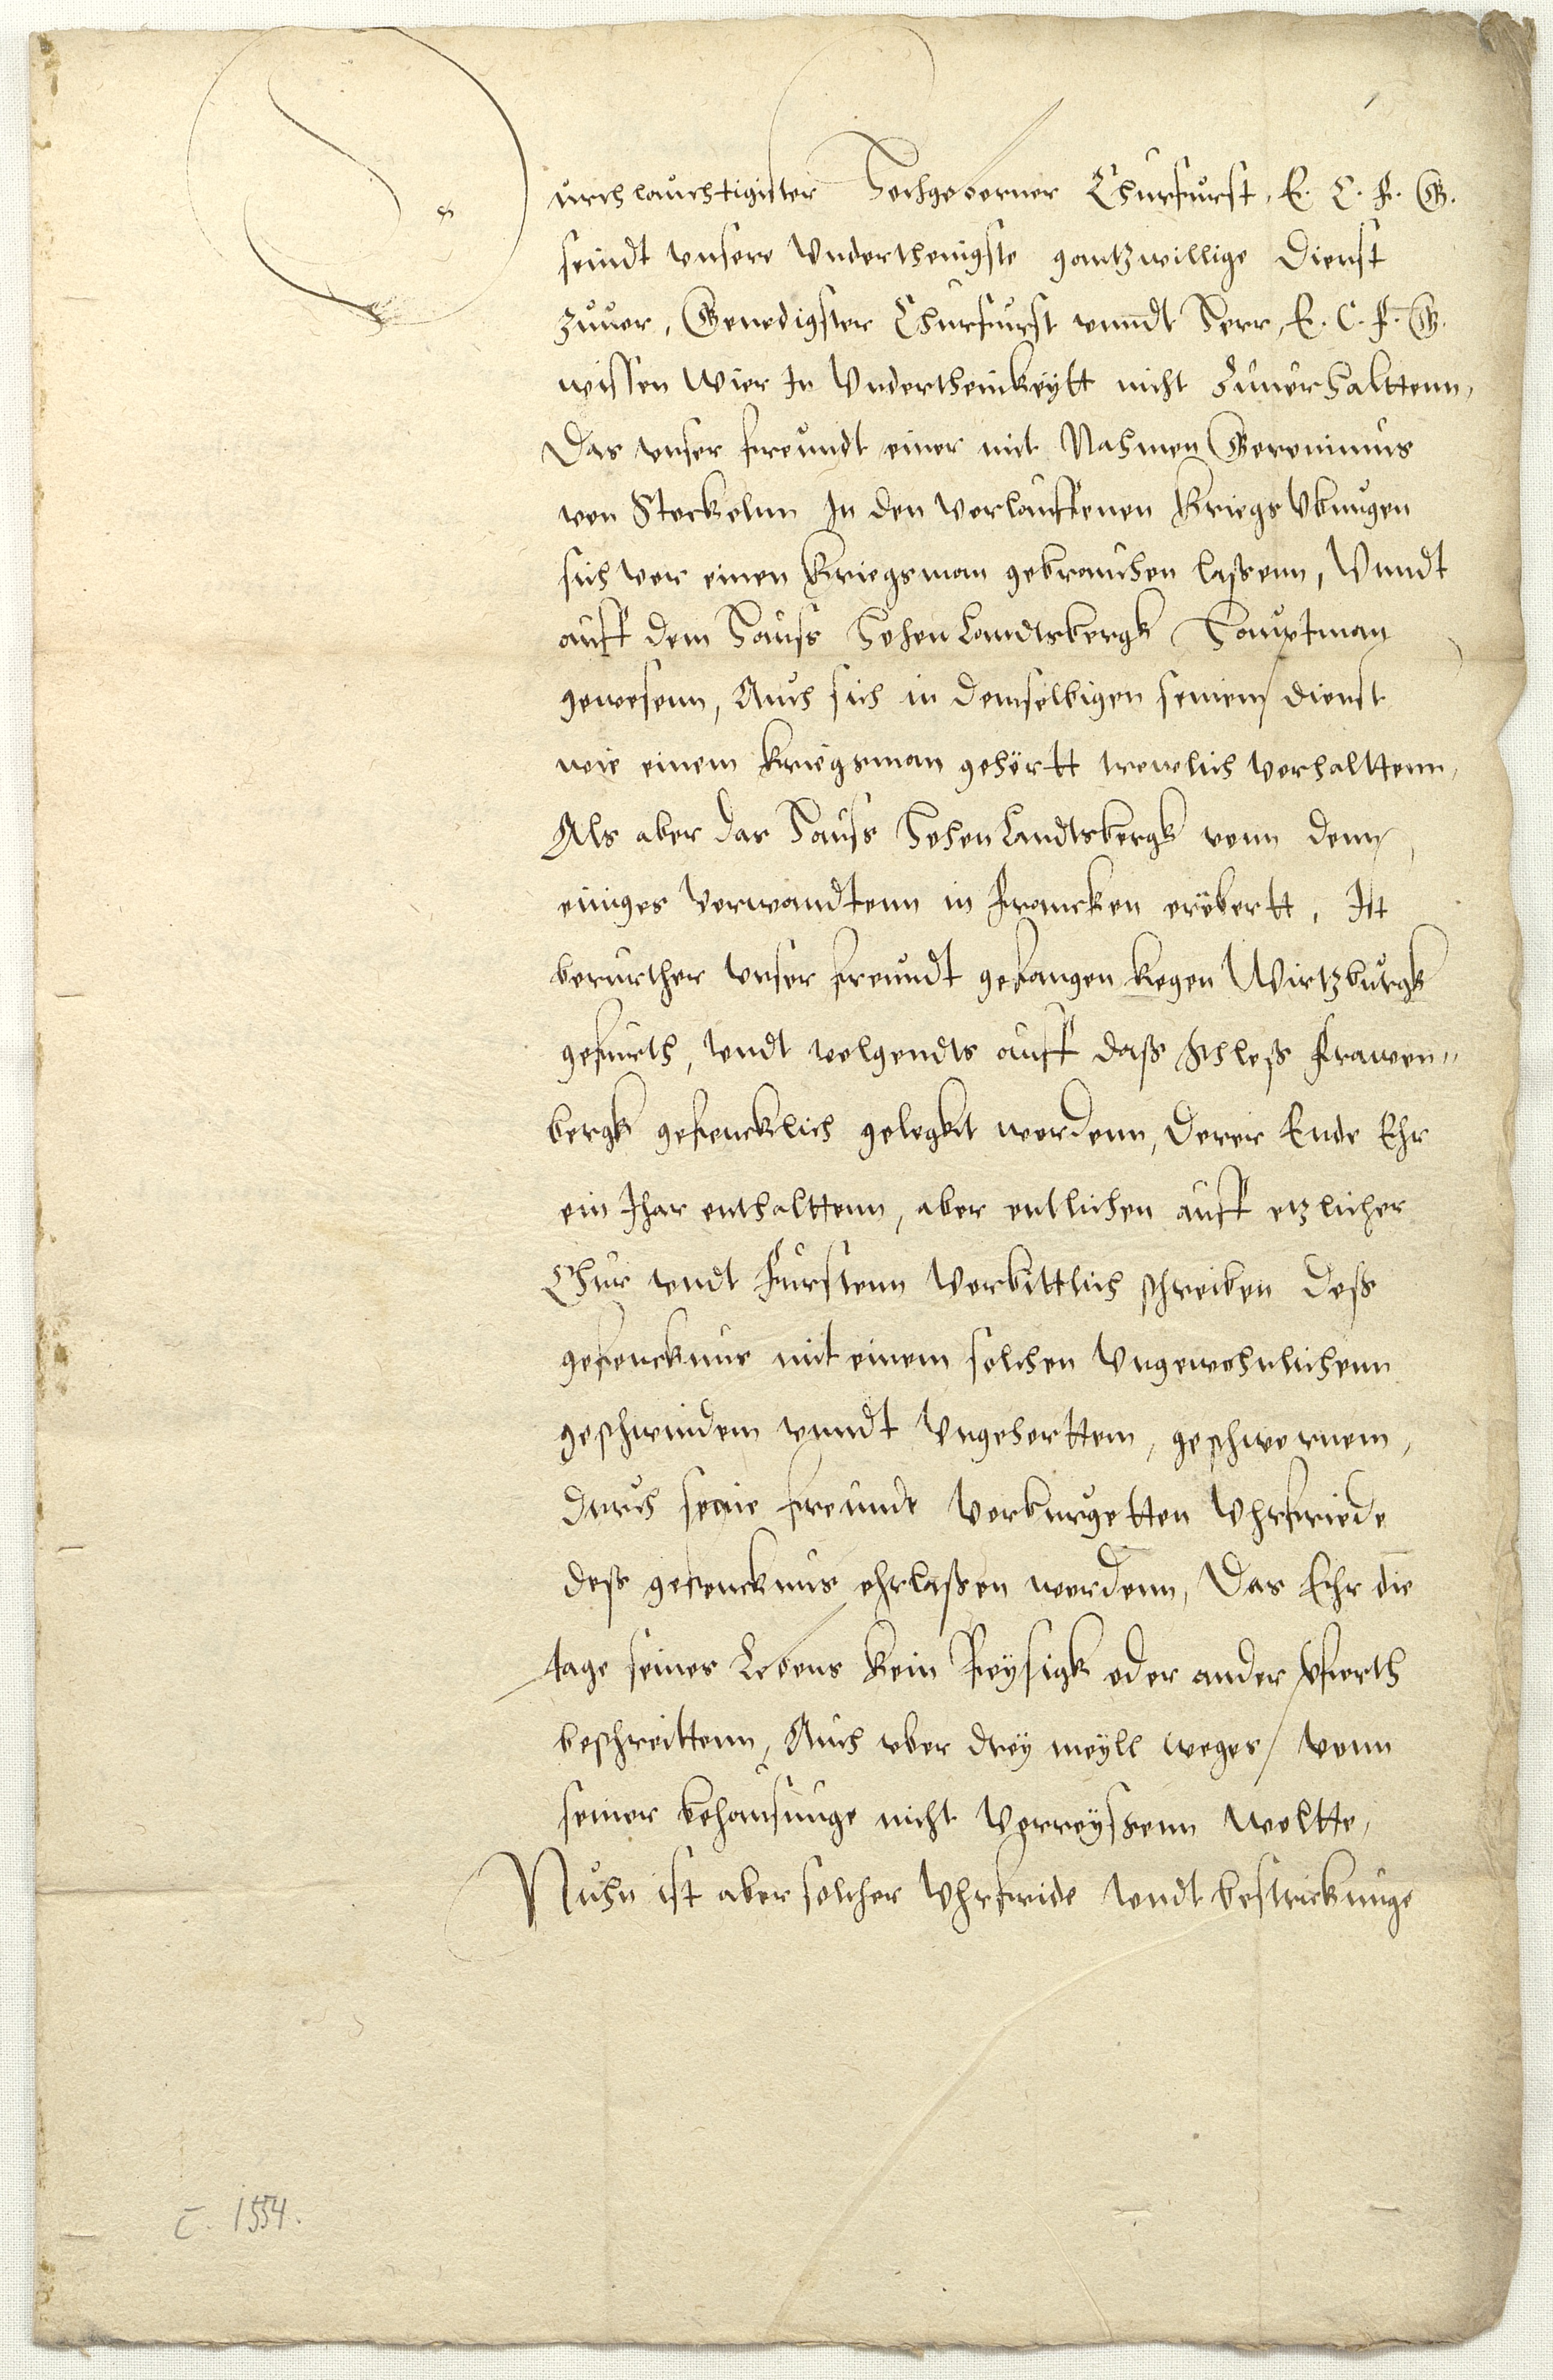 Durchlauchtigister Hochgeborner Churfurst, E. C. F. G.
seindt vnsere vnderthenigste gantzwillige dienst
zuuor, Genedigster Churfurst vnndt Herr, E. C. F. G.
wissen Wier In Vndertheinkeytt nicht Zuuerhalttenn,
Das vnser freundt einer mit Nahmen Geronimus
von Stockelnn In den Verlauffenen Kriegs Vbungen
sich vor einen Kriegsman gebrauchen lassenn, Vnndt
auff dem Hauss HohenLandtsbergk Hauptman
gewesenn, Auch sich in demselbigen seinem dienst
wie einem kriegsman gehörtt trewlich verhalttenn,
Als aber das Hauss HohenLandtsbergk vonn denn
einiges Verwandtenn in Francken eröbertt, Ist
berurther vnser freundt gefangen kegen Wirtzburgk
gefurth, vndt volgendts auff daß Schloß Frawen"
bergk gefencklich gelegkt wordenn, Derer Ende Ehr
ein Jhar enthalttenn, aber entlichen auff etzlicher
Chur vndt Furstenn Vorbittlich schreiben deß
gefencknus mit einem solchen Vngewohnlichenn
geschwindem vnndt Vngehorttem, geschwornem,
durch seine freunde Verburgetten Vhrfriede
deß gefencknus ehrlaßen wordenn, Das Ehr die
tage seines Lebens kein Reysigk oder ander Pferth
beschreittenn, Auch vber drey meyll weges vonn
seiner behausunge nicht Verreyssenn woltte,
Nuhn ist aber solcher Vhrfride vndt bestrickunge
c. 1554.